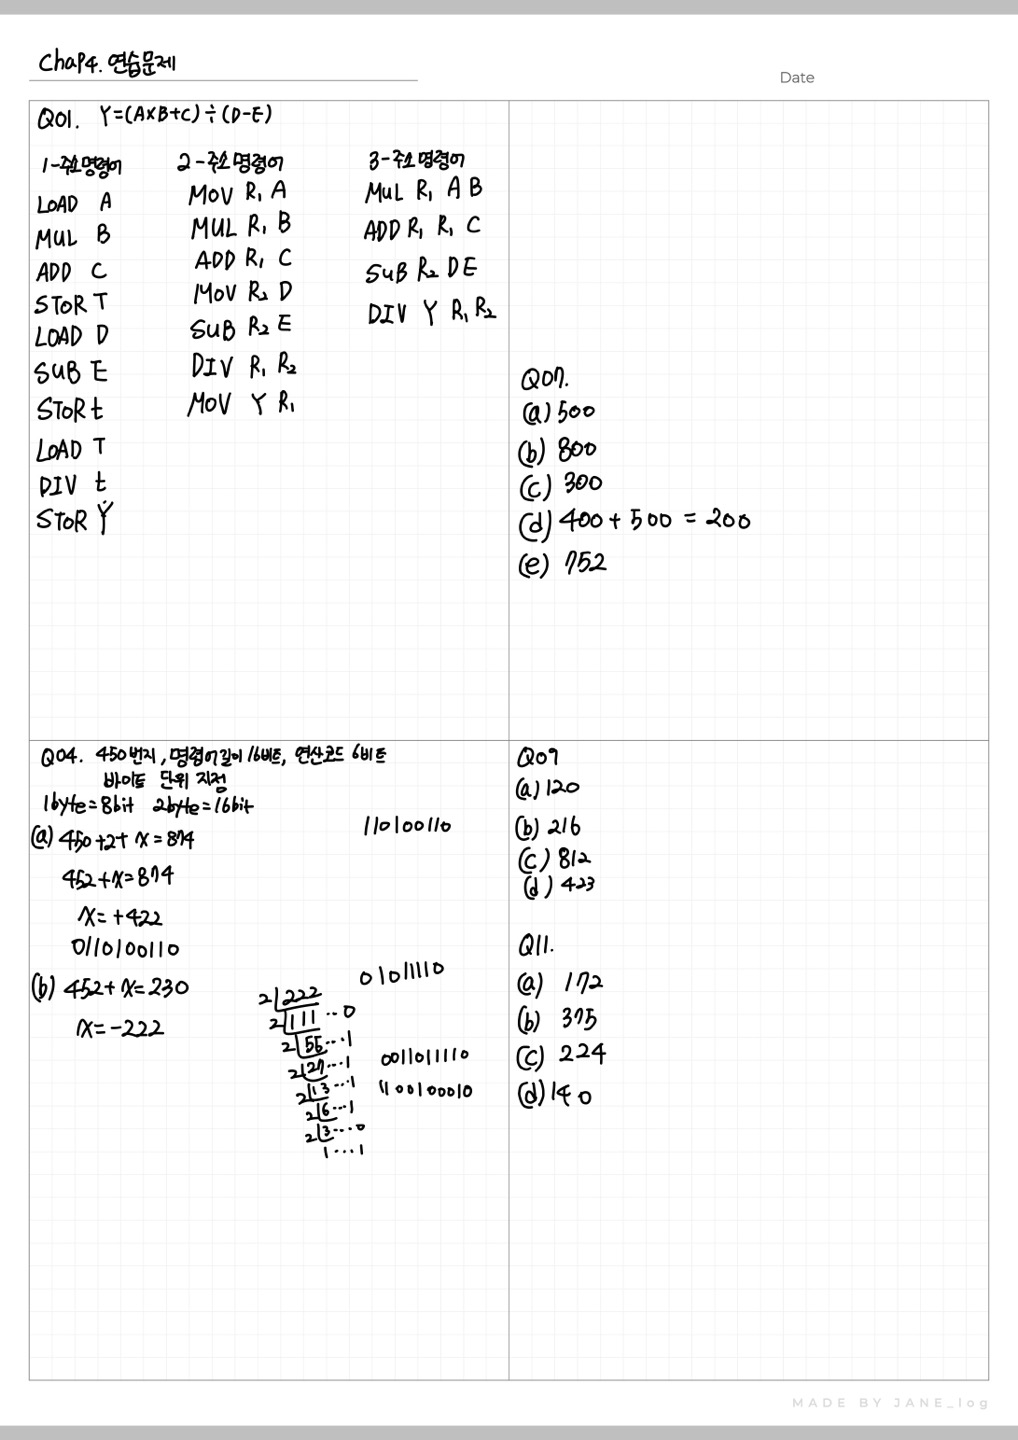 Chap4. 연습문제
Date
Q01. Y=(A×B+C)÷(D-E)
1-주소명령어
LOAD A
MUL B
ADD C
STOR T
LOAD D
SUB E
STOR t
LOAD T
DIV t
STOR Y
2-주소명령어
MOV R₁ A
MUL R₁ B
ADD R₁ C
MOV R₂ D
SUB R₂ E
DIV R₁ R₂
MOV Y R₁
3-주소명령어
MUL R₁ A B
ADD R₁ R₁ C
SUB R₂ D E
DIV Y R₁ R₂
Q07.
(a) 500
(b) 800
(c) 300
(d) 400 + 500 = 200
(e) 752
Q04. 450번지, 명령어길이 16비트, 연산코드 6비트
바이트 단위 지정
1byte=8bit 2byte=16bit
(a) 450+2+x=874
452+x=874
x=+422
0110100110
110100110
(b) 452+x=230
x=-222
2 222
2 111 ...0
2 55 ...1
2 27 ...1
2 13 ...1
2 6 ...1
2 3 ...0
1 ....1
01011110
0011011110
1100100010
Q09
(a) 120
(b) 216
(c) 812
(d) 423
Q11.
(a) 172
(b) 375
(c) 224
(d) 140
MADE BY JANE_log